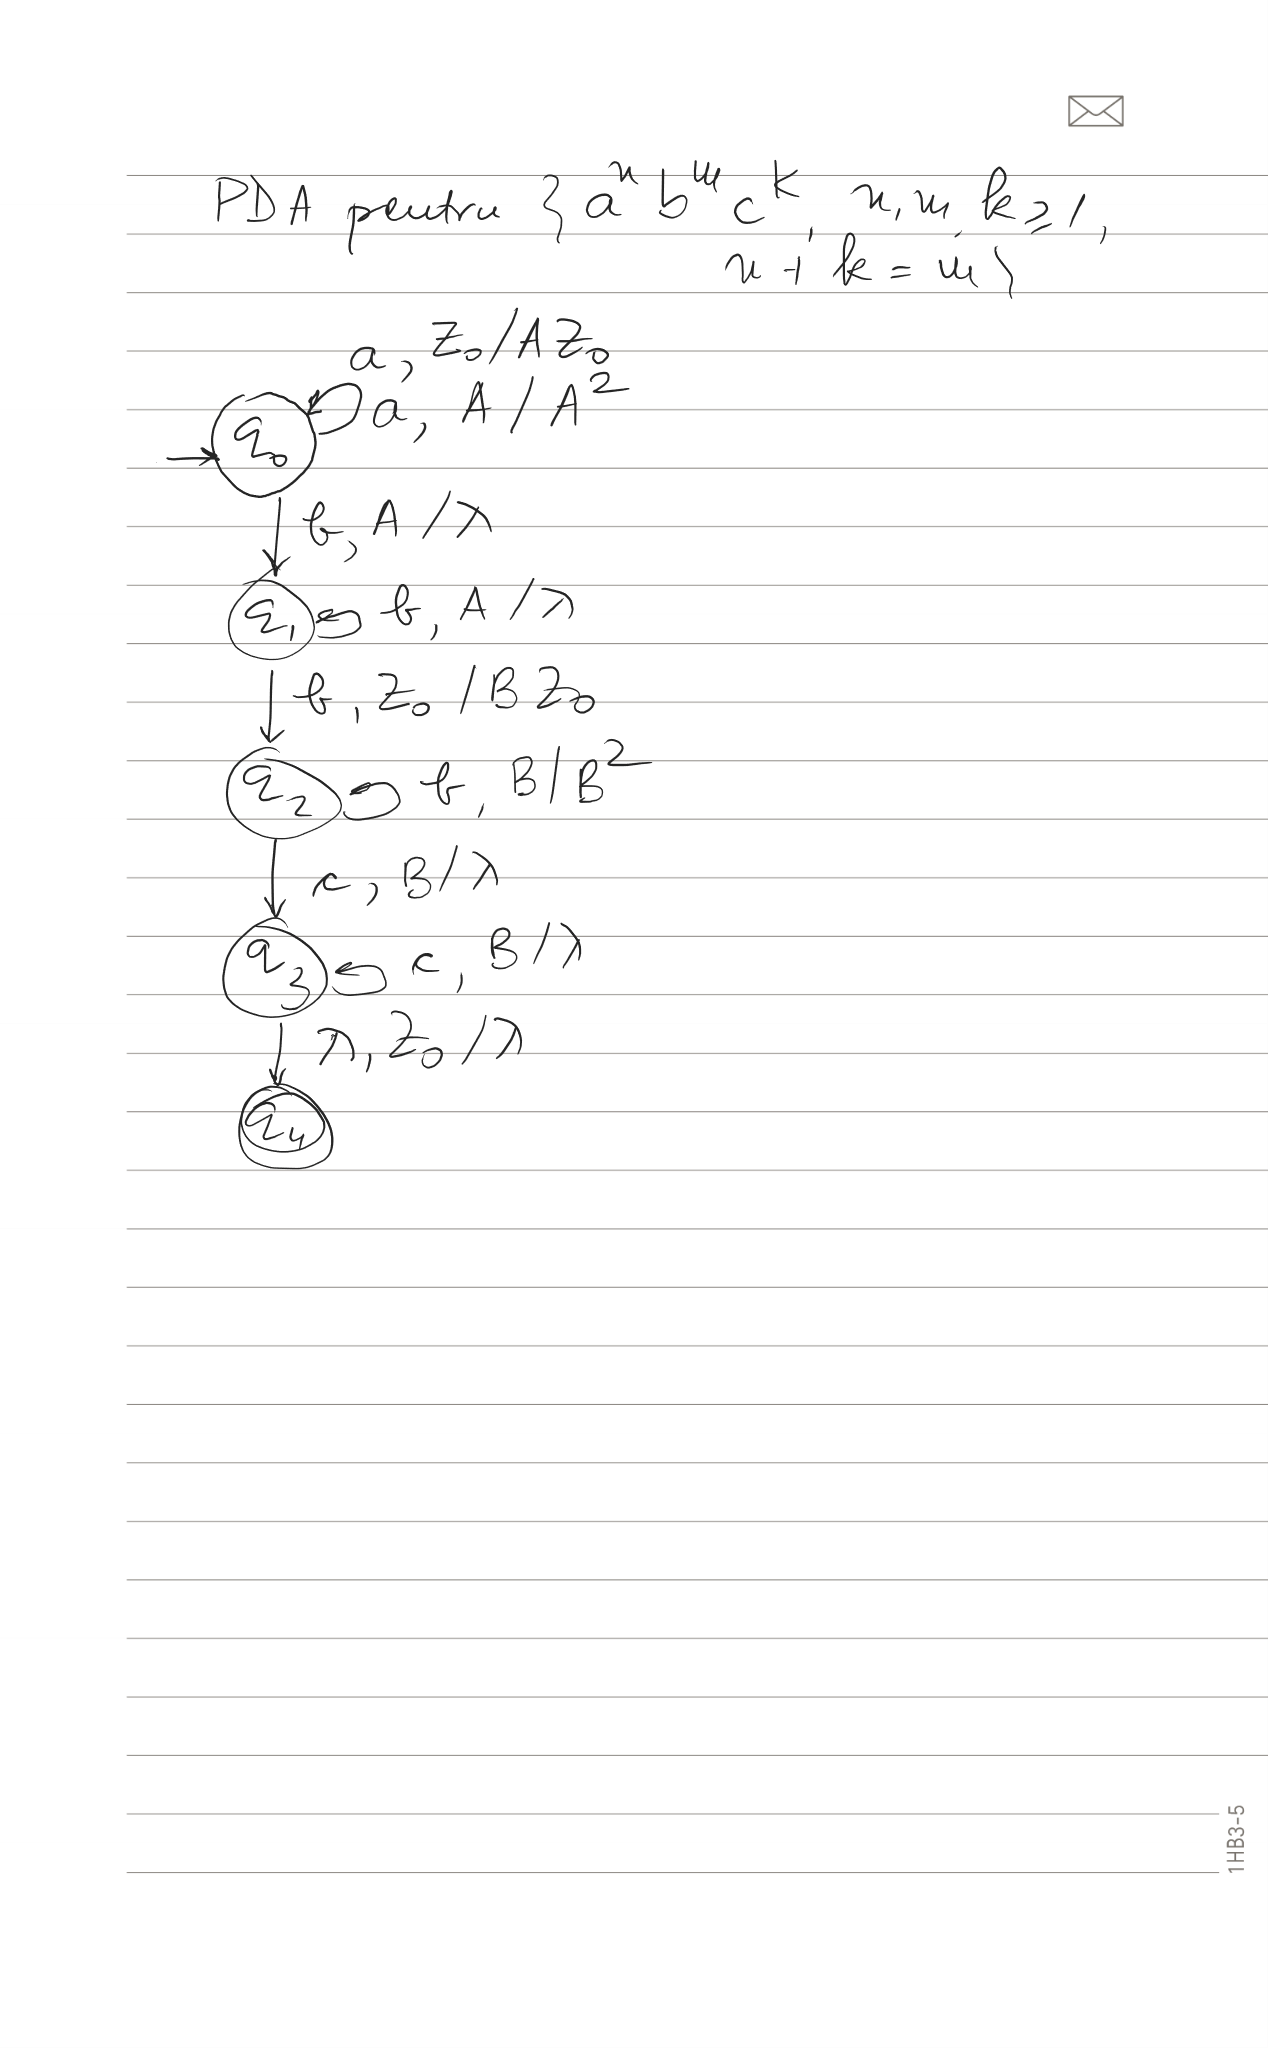 PDA pentru { aⁿ bᵐ cᵏ, n, m, k ≥ 1,
n + k = m }
a, Z₀/AZ₀
q₀ a, A/A²
b, A/λ
q₁ b, A/λ
b, Z₀/BZ₀
q₂ b, B/B²
c, B/λ
q₃ c, B/λ
λ, Z₀/λ
q₄
1HB3-5